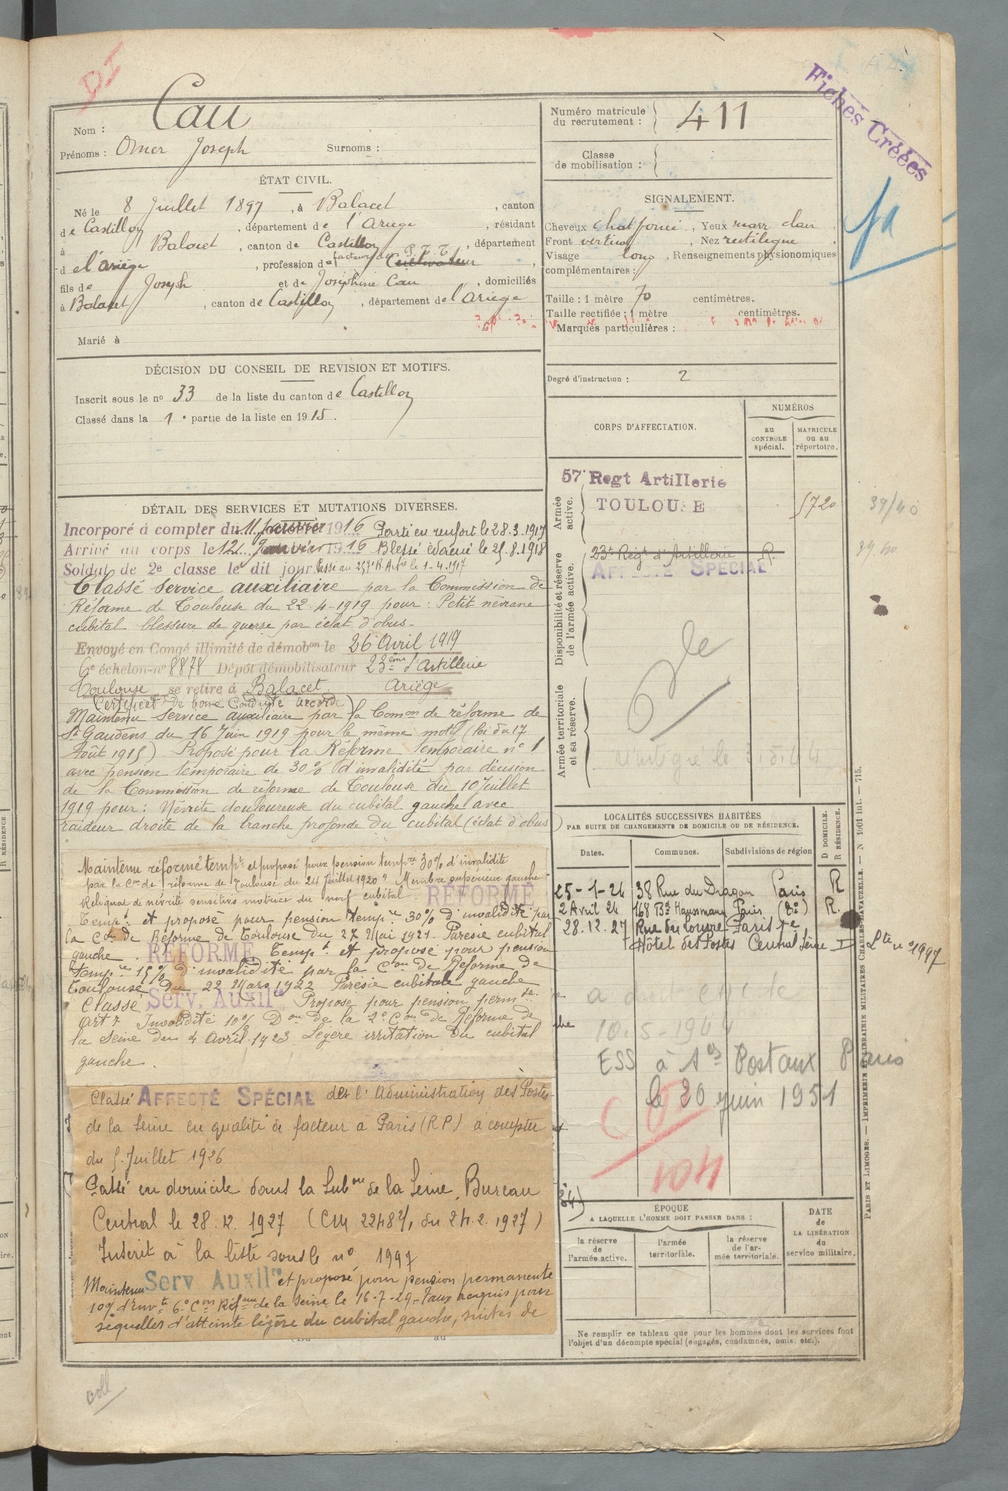 DI
Nom : Cau
Prénoms : Omer Joseph Surnoms :
Numéro matricule du recrutement : 411
Classe de mobilisation :
Fiches Créées
ÉTAT CIVIL.
Né le 8 Juillet 1897, à Balacet, canton
de Castillon, département de l'Ariège, résidant
à Balacet, canton de Castillon, département
de l'ariège, profession de facteur des P.T.T. Cultivateur
fils de Joseph et de Joséphine Cau, domiciliés
à Balacet, canton de Castillon, département de l'Ariège
Marié à
SIGNALEMENT.
Cheveux chat foncé, Yeux marr clair
Front vertical, Nez rectiligne
Visage long, Renseignements physionomiques
complémentaires :
Taille : 1 mètre 70 centimètres.
Taille rectifiée : 1 mètre centimètres.
Marques particulières :
Degré d'instruction : 2
DÉCISION DU CONSEIL DE REVISION ET MOTIFS.
Inscrit sous le nº 33 de la liste du canton de Castillon
Classé dans la 1e partie de la liste en 1915.
CORPS D'AFFECTATION.
NUMÉROS
AU CONTRÔLE spécial.
MATRICULE OU AU répertoire.
Armée active.
57e Regt Artillerie
TOULOUSE
5720
39/40
Disponibilité et réserve de l'armée active.
23e Regt d'Artillerie R.
AFFECTÉ SPÉCIAL
Armée territoriale et sa réserve.
DÉTAIL DES SERVICES ET MUTATIONS DIVERSES.
Incorporé à compter du 11 janvier 1916 Parti en renfort le 28.3.1917
Arrivé au corps le 12 Janvier 1916 Blessé évacué le 29.8.1918
Soldat de 2e classe le dit jour Passé au 257e R. Artie le 1.4.1917
Classé service auxiliaire par la Commission de
Réforme de Toulouse du 22-4-1919 pour : Petit névrome
cubital blessure de guerre par éclat d'obus.
Envoyé en Congé illimité de démobon le 26 Avril 1919
6e échelon nº 8878 Dépôt démobilisateur 23ème d'Artillerie
Toulouse se retire à Balacet Ariège
Certificat de bonne Conduite accordé
Maintenu service auxiliaire par la Comon de réforme de
St Gaudens du 16 Juin 1919 pour le même motif (loi du 17
Août 1915) Proposé pour la Réforme Temporaire nº 1
avec pension temporaire de 30% d'invalidité par décision
de la Commission de réforme de Toulouse du 10 Juillet
1919 pour : Névrite douloureuse du cubital gauche avec
raideur droite de la branche profonde du cubital (éclat d'obus)
Maintenu réformé tempre et proposé pour pension tempre 30% d'invalidité
par la Con de réforme de Toulouse du 24 Juillet 1920. Membre supérieur gauche
Reliquat de névrite sensitivo motrice du nerf cubital RÉFORMÉ
Tempre et proposé pour pension tempre 30% d'invalidité par
la Con de Réforme de Toulouse du 27 Mai 1921. Parésie cubitale
gauche. RÉFORMÉ Tempre et proposé pour pension
tempre 15% d'invalidité par la Con de Réforme de
Toulouse du 22 Mars 1922 Parésie cubitale gauche
Classé Serv. Auxilre Proposé pour pension permte
Invalidité 10% Don de la 2e Con de Réforme de
la Seine du 4 Avril 1923 Légère irritation du cubital
gauche.
Classé AFFECTÉ SPÉCIAL de l'Administration des Postes
de la Seine en qualité de facteur à Paris (RP) à compter
du 5 Juillet 1926
Passé en domicile dans la Subon de la Seine, Bureau
Central le 28.12.1927
Inscrit à la liste sous le nº 1997
Maintenu Serv. Auxilre et proposé pour pension permanente
10% d'Invté 6e Con Réfme de la Seine le 16-7-29. Taux acquis pour
séquelles d'atteinte légère du cubital gauche, suites de
LOCALITÉS SUCCESSIVES HABITÉES
PAR SUITE DE CHANGEMENTS DE DOMICILE OU DE RÉSIDENCE.
Dates. Communes. Subdivisions de région D DOMICILE. R RÉSIDENCE.
25-1-24 38 Rue du Dragon Paris R
2 Avril 24 168 Bd Haussmann Paris R.
28.12.27 Rue du Louvre Paris 1e
Hôtel des Postes Central Seine D Lte nº 1997
10-5-1944
ESS à Ses Postaux Paris
le 20 juin 1951
104
ÉPOQUE
A LAQUELLE L'HOMME DOIT PASSER DANS :
la réserve de l'armée active.
l'armée territoriale.
la réserve de l'armée territoriale.
DATE de LA LIBÉRATION du service militaire.
Ne remplir ce tableau que pour les hommes dont les services font
l'objet d'un décompte spécial (engagés, condamnés, omis, etc.).
PARIS ET LIMOGES. — IMPRIMERIE ET LIBRAIRIE MILITAIRES CHARLES-LAVAUZELLE. — N° 1001 int. — 715.